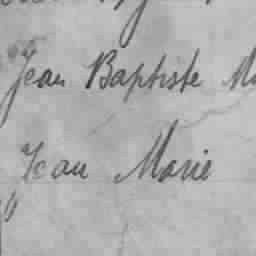 Jean Baptiste
Jean Marie
"